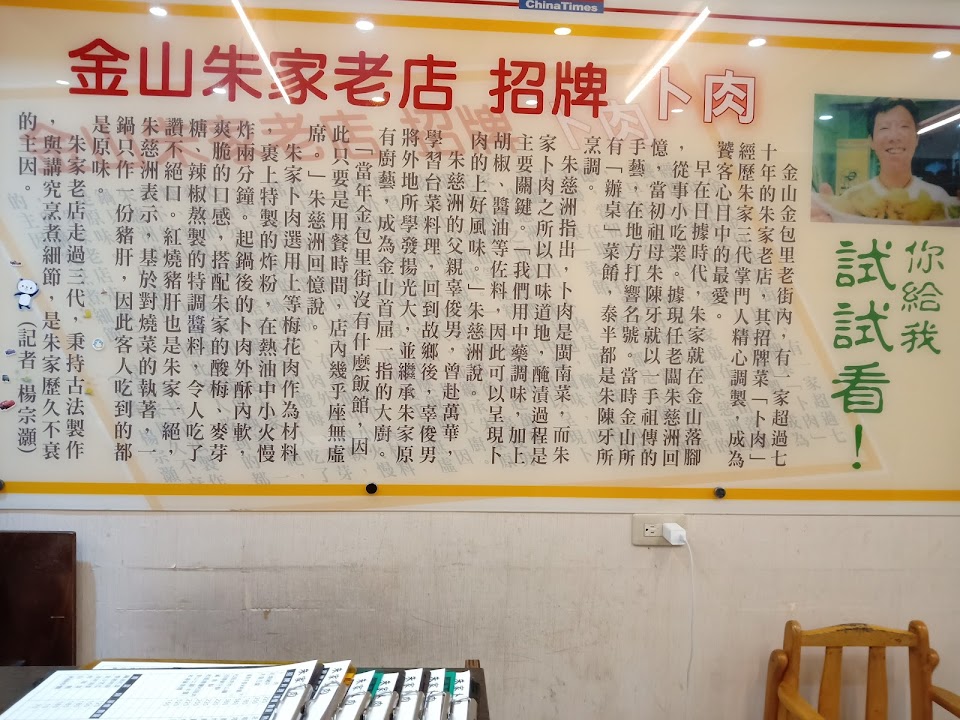 ChinaTimes
金山朱家老店 招牌 卜肉
你給我
試試看！
金山金包里老街內，有一家超過七
十年的朱家老店，其招牌菜「卜肉」
經歷朱家三代掌門人精心調製，成為
饕客心目中的最愛。
早在日據時代，朱家就在金山落腳
，從事小吃業。據現任老闆朱慈洲回
憶，當初祖母朱陳牙就以一手祖傳的
手藝，在地方打響名號。當時金山所
有「辦桌」菜餚，泰半都是朱陳牙所
烹調。
朱慈洲指出，卜肉是閩南菜，而朱
家卜肉之所以口味道地，醃漬過程是
主要關鍵。「我們用中藥調味，加上
胡椒、醬油等佐料，因此可以呈現卜
肉的上好風味。」朱慈洲說。
朱慈洲的父親辜俊男，曾赴萬華，
學習台菜料理，回到故鄉後，辜俊男
將外地所學發揚光大，並繼承朱家原
有廚藝，成為金山首屈一指的大廚。
「當年金包里街沒有什麼飯館，因
此只要是用餐時間，店內幾乎座無虛
席。」朱慈洲回憶說。
朱家卜肉選用上等梅花肉作為材料
，裹上特製的炸粉，在熱油中小火慢
炸兩分鐘。起鍋後的卜肉外酥內軟，
爽脆的口感，搭配朱家的酸梅、麥芽
糖、辣椒熬製的特調醬料，令人吃了
讚不絕口。紅燒豬肝也是朱家一絕，
朱慈洲表示，基於對燒菜的執著，一
鍋只作一份豬肝，因此客人吃到的都
是原味。
朱家老店走過三代，秉持古法製作
，與講究烹煮細節，是朱家歷久不衰
的主因。（記者 楊宗灝）